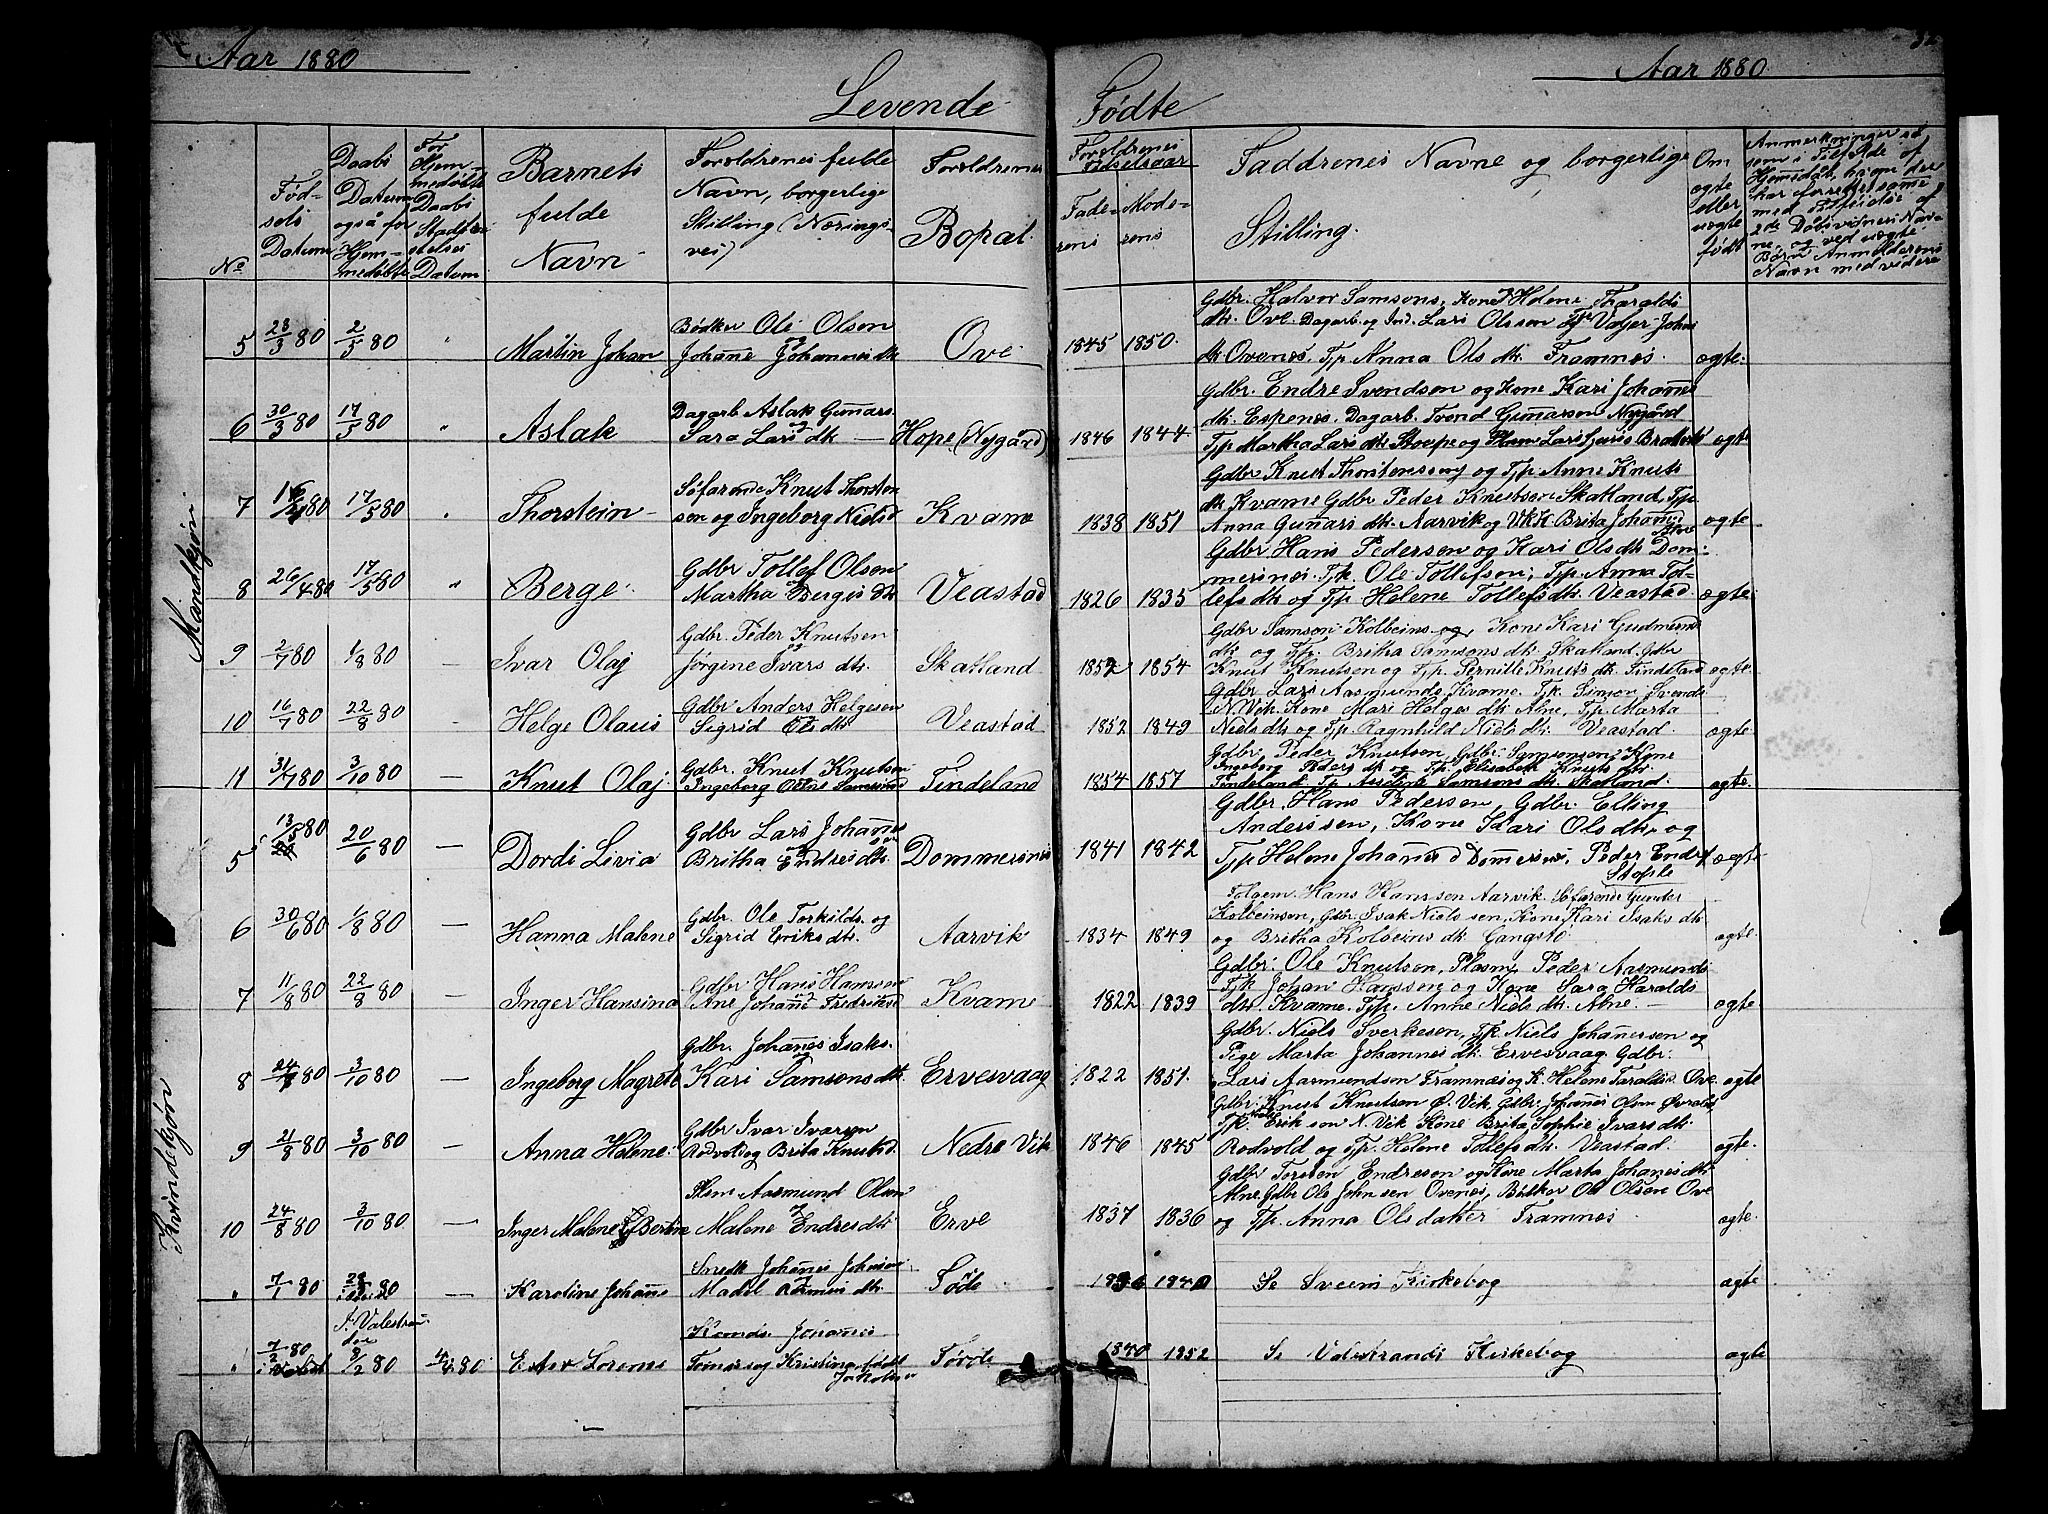 Aar 1880
Aar 1880
Levende Fødte
No
Fød-
sels
Datum
Daabs
Datum
også for
Hjem-
medøbte
For
Hjem-
medøbte
Daabs
Stadfæs
telses
Datum
Barnets
fulde
Navn
Forældrenes fulde
Navn, borgerlige
Stilling (Nærings-
vei)
Forældrenes
Bopæl
Forældrenes
Fødselsaar
Fade-
rens
Mode-
rens
Faddrenes Navne og borgerlige
Stilling
Om
ægte
eller
uægte
født
Mandkjøn
5 23/3 80 2/5 80 " Martin Johan
Bødker Ole Olsen
og Johanne Johannes dtr
Ove 1845 1850
Gdbr. Halvor Samsons, Kone Helene Haralds
dtr. Ove. Dagarb. og Ind. Lars Olsson
dtr. Ovenes, Tjp. Anna Ols dtr. Framnes. ægte
6 30/3 80 17/5 80 " Aslak
Dagarb. Aslak Gunnars.
og Sara Lars dtr
Hope (Nygård) 1846 1844
Gdbr. Endre Svendsen og Kone Kari Johannes
dtr. Espenes. Dagarb. Trond Gunnarson Nygård
Tjp. Martha Lars dtr. Stople og ægte
7 17/5 80 " Thorstein
Søfarende Knut Thorsten
sen og Ingeborg Niels d
Kvame 1838 1851
Gdbr Knut Thorstensson og Tjp. Anne Knuts
dtr Kvame Gdbr Peder Knutsen Skatland, Tjp
Anna Gunnars dtr. Aarvik og Brita Johannes ægte
8 26/4 80 17/5 80 " Berge
Gdbr Tollef Olsen
og Martha Berges dtr
Veastad 1826 1835
Gdbr Hans Pedersen og Kari Ols dtr. Dom-
mersnes. Tjk. Ole Tollefsen, Tjp. Anna Tol-
lefs dtr og Tjp Helene Tollefs dtr. Veastad ægte
9 2/7 80 1/8 80 — Ivar Olaj
Gdbr. Peder Knutsen
og Jørgine Ivars dtr.
Skatland 1852 1854
Gdbr Samson Kolbeins og Kone Kari Gudmuns
dtr og Tjp. Britha Samsons dtr. Skatland. Gdbr
Knut Knutsen og Tjp. Pernille Knuts dtr. Tindeland ægte
10 16/7 80 22/8 80 Helge Olaus
Gdbr Anders Helgesen
og Sigrid Ols dtr.
Veastad 1852 1849
Gdbr Lars Aasmunds Kvame. Tjk. Simon Svends
N. Vik. Kone Mari Helges dtr. Alne, Tjp. Marta
Niels dtr og Tjp Ragnhild Niels dtr. Veastad ægte
11 31/7 80 3/10 80 — Knut Olaj
Gdbr. Knut Knutsen
Ingeborg Oline Samsonsd
Tindeland 1854 1857
Gdbr. Peder Knutsen, Gdbr. Samsonsen, Kone
Ingeborg Peders dtr og Tjp. Elisabeth Knuts dtr.
Tindeland Tjp Samsons dtr. Skatland. ægte
Kvindekjøn
5 13/5 80 20/6 80 — Dordi Livia
Gdbr Lars Johannes
sen og Britha Endres dtr.
Dommersnes 1841 1842
Gdbr. Hans Pedersen, Gdbr. Elling
Anderssen, Kone Kari Ols dtr. og
Tjp. Helene Johannes d Dommersnes, Peder Endres
Stople ægte
6 30/6 80 1/8 80 — Hanna Malene
Gdbr. Ole Torkilds. og
Sigrid Eriks dtr.
Aarvik 1834 1849
Hans Hanssen Aarvik. Søfarende Gunder
Kolbeinsen, Gdbr. Isak Nielssen, Kone Kari Isaks dtr
og Britha Kolbeins dtr. Gangstø. ægte
7 11/8 80 22/8 80 — Inger Hansina
Gdbr Hans Hansen
Ane Johanne Fredriksd
Kvame 1822 1839
Gdbr. Ole Knutsen, Plasm. Peder Aasmunds
Tjk Johan Hanssen og Kone Sara Haralds
dtr. Kvame. Tjp. Anne Niels dtr. Alne. — ægte
8 24/8 80 3/10 80 — Ingeborg Magrete
Gdbr. Johannes Isaks.
og Kari Samsons dtr.
Ervesvaag 1822 1851
Gdbr. Niels Sverkesen, Tjk Niels Johannesen og
Pige Marta Johannes dtr. Ervesvaag. Gdbr.
Lars Aasmundsen Framnæs og K. Helene Taralds. Ove. ægte
9 21/8 80 3/10 80 — Anna Helene
Gdbr Ivar Ivarsen
Rødvold og Brita Knutsd.
Nedre Vik 1846 1845
Gdbr. Knut Knutsen Ø. Vik. Gdbr. Johannes Olsen
Tjk. Erik son N. Vik Kone Brita Sophie Ivars dtr.
Rødvold og Tjp. Helene Tollefs dtr. Veastad. ægte
10 24/8 80 3/10 80 — Inger Malene Bertine
Plsm Aasmund Olsen
og Malene Endres dtr.
Erve 1837 1836
Gdbr Torsten Endresen og Kone Marta Johannes dtr.
Alne, Gdbr Ole Johnsen Ovenes, Bødker Ole Olsen Ove
og Tjp. Anna Olsdatter Framnes ægte
" 7/1 80 — Karoline Johanne
Smedk Johannes Johnsen
1840 Se Sveens Kirkebog ægte
" 7/2 80 I. Valestran
den 8/2 80 Ester Lorense
Johannes
1840 1852 Se Valestrands Kirkebog ægte